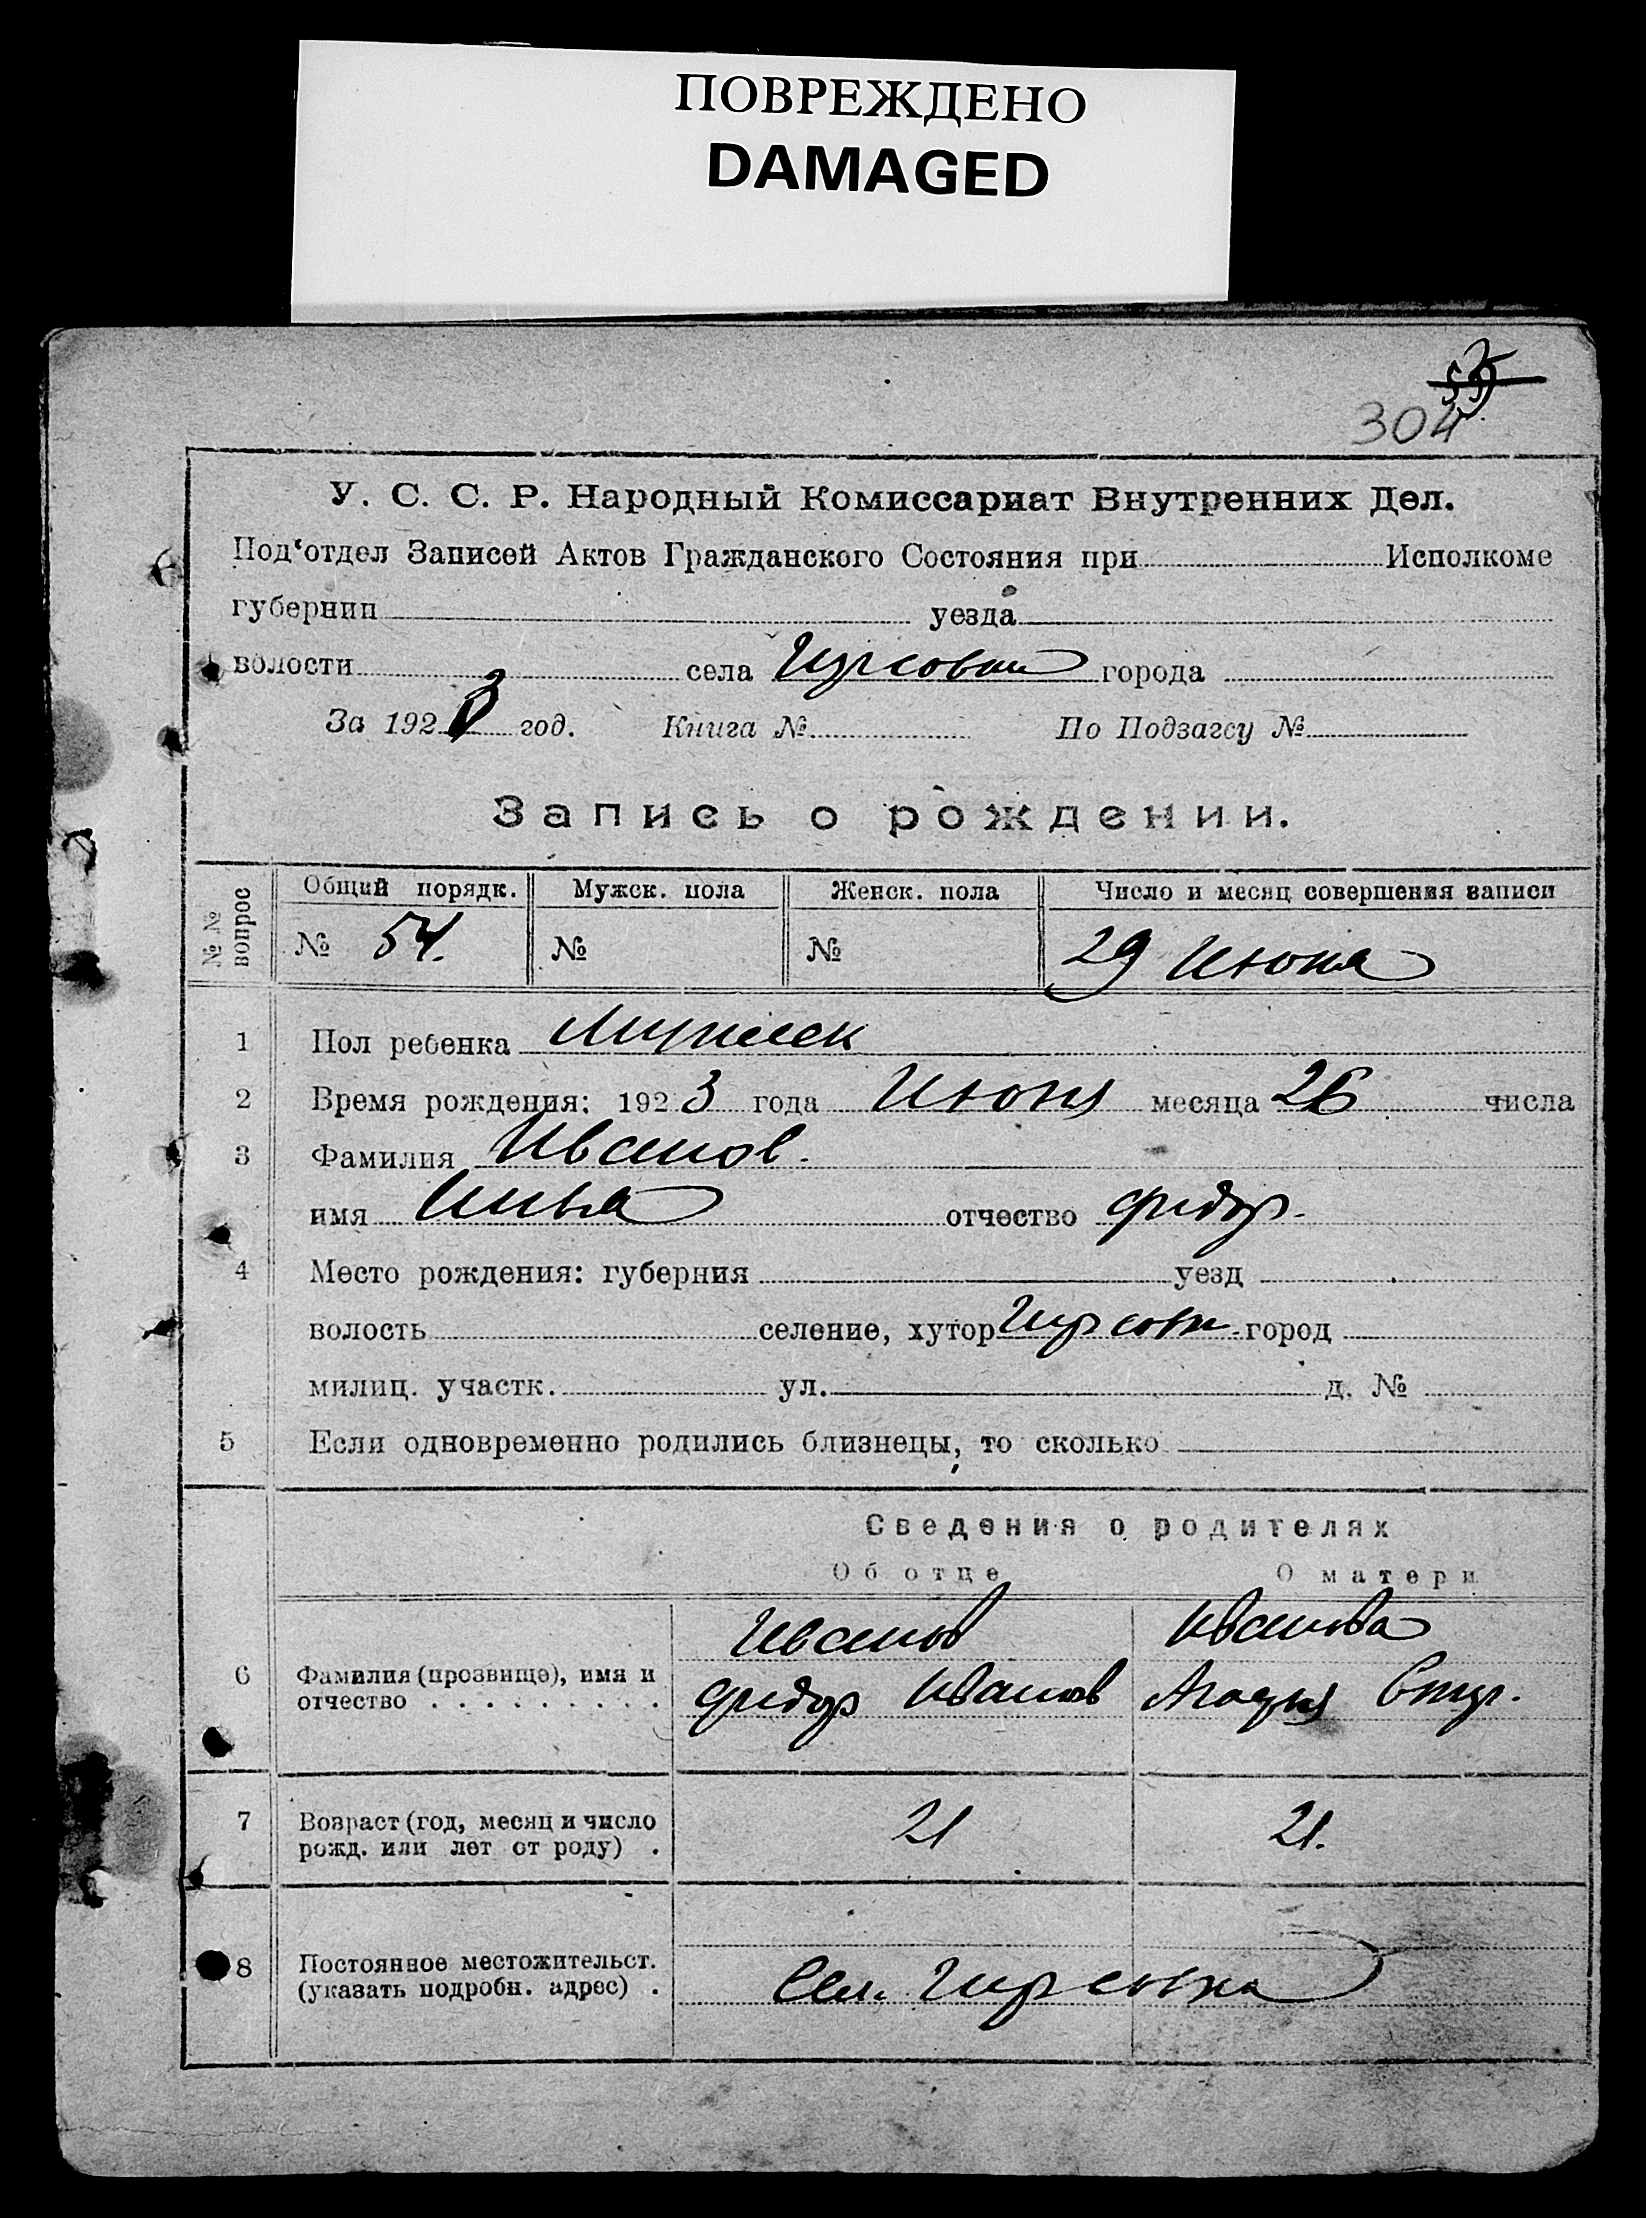 ПОВРЕЖДЕНО
DAMAGED
304
У. С. С. Р. Народный Комиссариат Внутренних Дел.
Под‘отдел Записей Актов Гражданского Состояния при Исполкоме
губернии уезда
волости села города
За 1923 год. Книга № По Подзагсу №
Запись о рождении.
№№ вопрос
Общий порядк. Мужск. пола Женск. пола Число и месяц совершения записи
№ 54. № № 29 Июня
1 Пол ребенка Мужеск
2 Время рождения: 1923 года Июня месяца 26 числа
3 Фамилия Иванов.
имя Илья отчество Фидор.
4 Место рождения: губерния уезд
волость селение, хутор город
милиц. участк. ул. д. №
5 Если одновременно родились близнецы, то сколько
Сведения о родителях
Об отце О матери
Иванов Иванова
6 Фамилия (прозвище), имя и
отчество . . . . . . . . . Фидор Иванов
7 Возраст (год, месяц и число
рожд. или лет от роду) . 21 21.
8 Постоянное местожительст.
(указать подробн. адрес) . Сел. Гирсовка